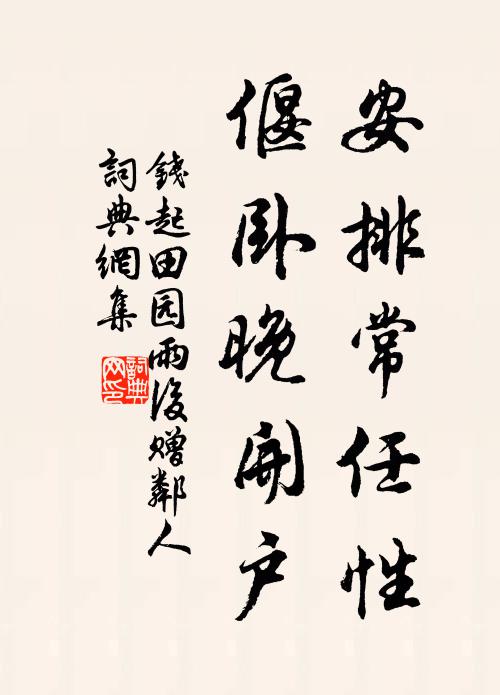 安排常任性
偃卧晚開户
錢起田园雨後赠鄰人
詞典網集
詞典网印